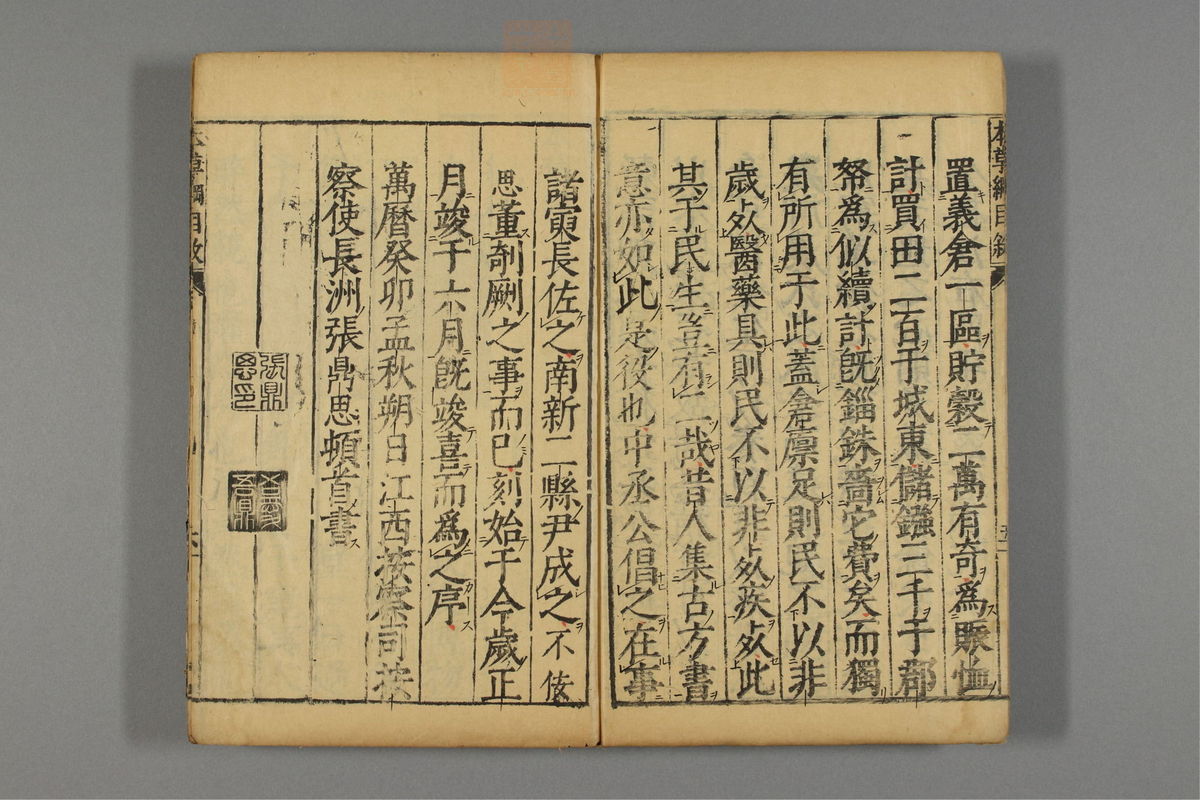 置義倉一區貯穀二萬有奇爲賑恤
計買田二百于城東儲鏹三千于郡
帑爲似續計旣錙銖嗇它費矣而獨
有所用于此蓋倉廪足則民不以非
歲歺醫藥具則民不以非歺疾歺此
其于民生豈有二哉昔人集古方書
意亦如此是役也中丞公倡之在事
諸寅長佐之南新二縣尹成之不佞
思董剞劂之事而已刻始于今歲正
月竣于六月旣竣喜而爲之序
萬曆癸卯孟秋朔日江西按察司按
察使長洲張鼎思頓首書
張鼎思印
本草綱目敘